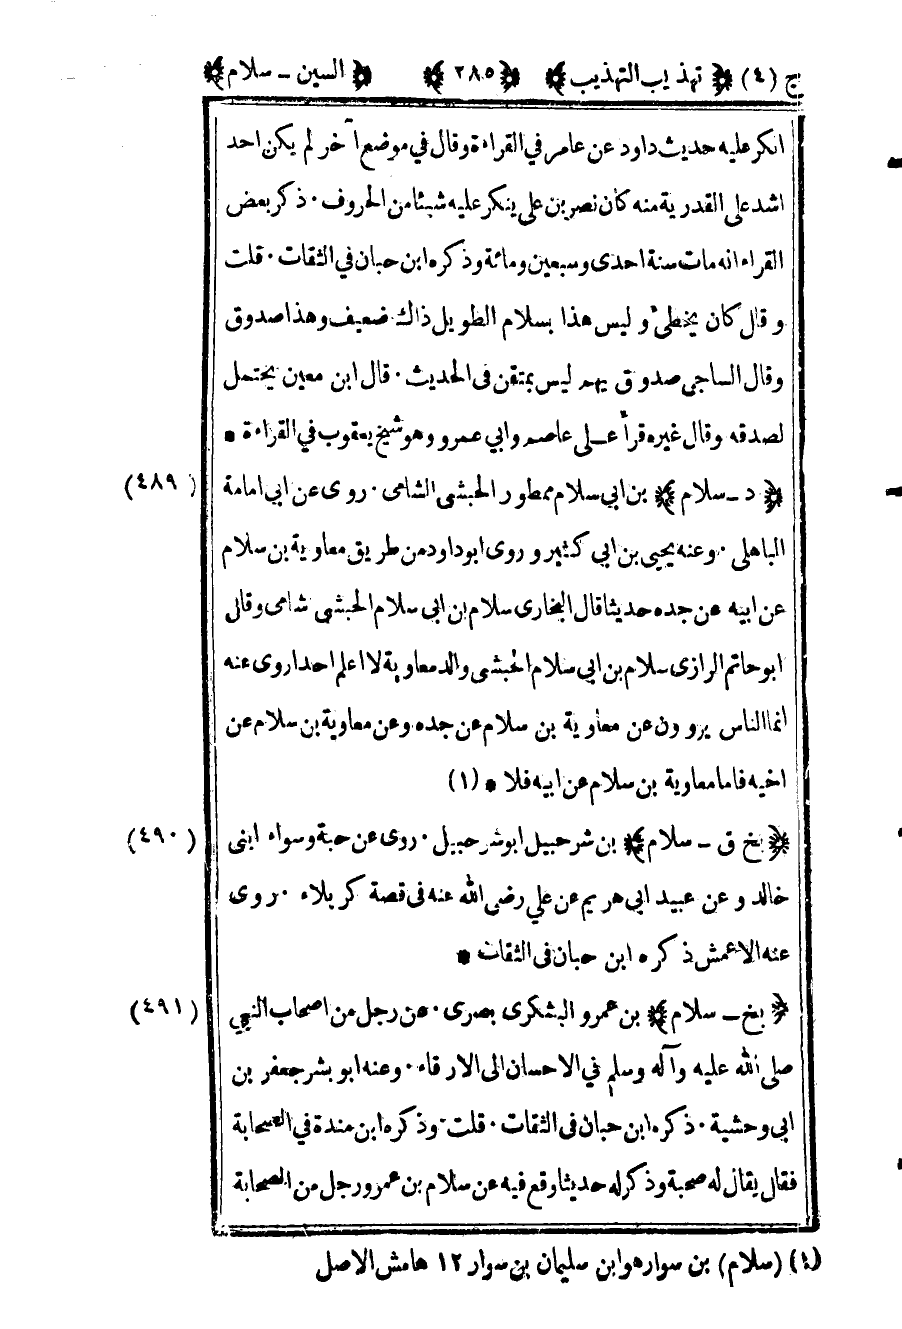 ج (٤) ﴿ تهذيب التهذيب ﴾ ﴿ ٢٨٥ ﴾ ﴿ السين - سلام ﴾
انكر عليه حديث داود عن عامر في القراءة وقال في موضع آخر لم يكن احد
اشد على القدرية منه كان نصر بن علي ينكر عليه شيئا من الحروف . ذكر بعض
القراء انه مات سنة احدى وسبعين ومائة وذكره ابن حبان في الثقات . قلت
وقال كان يخطئ وليس هذا بسلام الطويل ذاك ضعيف وهذا صدوق
وقال الساجي صدوق يهم ليس بمتقن في الحديث . قال ابن معين يحتمل
لصدقه وقال غيره قرأ على عاصم وابي عمرو وهو شيخ يعقوب في القراءة *
﴿ د - سلام ﴾ بن ابي سلام ممطور الحبشى الشامى . روى عن ابي امامة (٤٨٩)
الباهلى . وعنه يحيى بن ابي كثير وروى ابو داود من طريق معاوية بن سلام
عن ابيه عن جده حديثا قال البخارى سلام ابن ابى سلام الحبشى شامى وقال
ابو حاتم الرازى سلام بن ابي سلام الحبشى والد معاوية لا اعلم احدا روى عنه
انما الناس يروون عن معاوية بن سلام عن جده وعن معاوية بن سلام عن
اخيه فاما معاوية بن سلام عن ابيه فلا * (١)
﴿ بخ ق - سلام ﴾ بن شرحبيل ابو شرحبيل . روى عن حبة وسواء ابنى (٤٩٠)
خالد وعن عبيد ابى هريم عن علي رضى الله عنه فى قصة كربلاء . روى
عنه الاعمش ذكره ابن حبان فى الثقات *
﴿ بخ - سلام ﴾ بن عمرو اليشكرى بصرى . عن رجل من اصحاب النبي (٤٩١)
صلى الله عليه وآله وسلم في الاحسان الى الارقاء . وعنه ابو بشر جعفر بن
ابى وحشية . ذكره ابن حبان فى الثقات . قلت . وذكره ابن مندة في الصحابة
فقال يقال له صحبة وذكر له حديثا وقع فيه عن سلام بن عمرو رجل من الصحابة
(١) (سلام) بن سوار هو ابن سليمان بن سوار ١٢ هامش الاصل